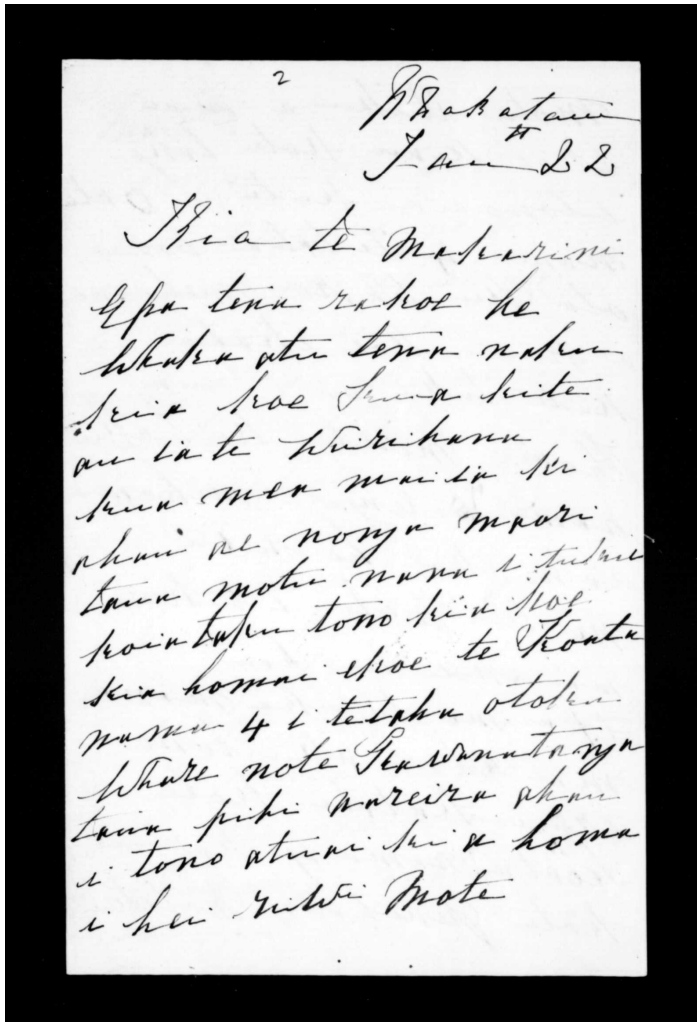 2
Whakatane
Jan 22
Kia te Makarini
Epa tena rakoe he
Whaka atu tena naku
kia koe kua kite
au ia te Wirihana
kua mea mai ia ki
ahau ne nonga maori
taua motu nana i
koia taku tono kia koe
kia homai ekoe te Koata
nama 4 i tetaha otoku
Whare note Kawanatanga
taua pihi nareira ahau
i tono atuai kia homa
i hei riiwi Mote